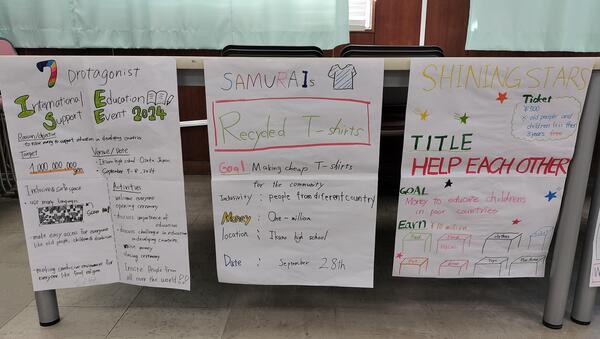 7 Protagonist
International Education
Support Event 2024
Reason/Objective
to raise money to support education in developing countries
Target
1,000,000,000 yen
Inclusive safe space
• use many languages
• make easy access for everyone
like old people, children & disabled
• making conducive environment for
everyone like food religion
Venue/Date
• Ikuno high school Osaka Japan
• September 7-8, 2024
Activities
welcome everyone
opening ceremony
• discuss importance of education
• discuss challenges in education
in developing countries
raise money
closing ceremony
Invite People from
all over the world
SAMURAIs
Recycled T-shirts
Goal : Making cheap T-shirts
for the community
Inclusivity : people from different country
Money : One-million
location : Ikuno high school
Date : September 28th
SHINING STARS
Ticket
¥500
※ old people and
children (under
3 years) free
TITLE
HELP EACH OTHER
GOAL
Money to educate childrens
in poor countries
EARN ¥10 million
Food
clothes
Toys